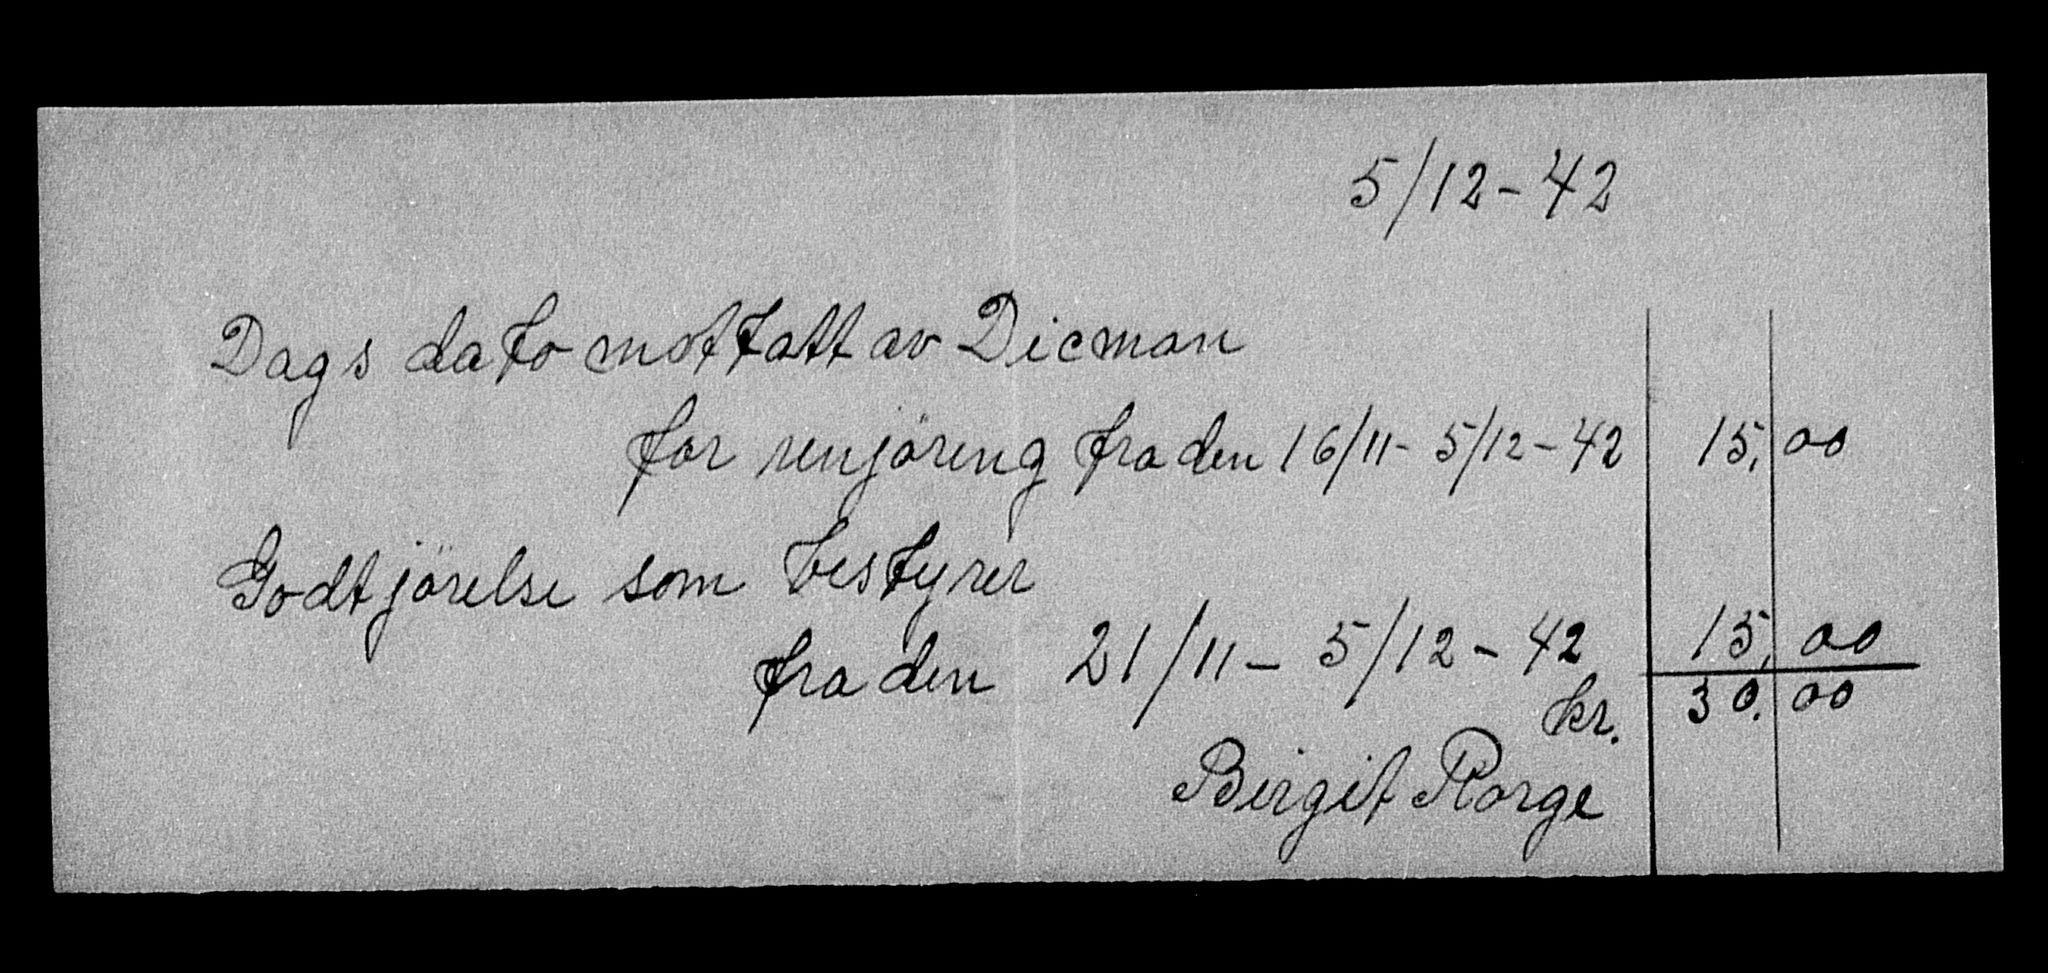 5/12-42
Dags dato mottatt av Dicman
for renjöring fra den 16/11- 5/12-42 15,00
Godtjörelse som bestyrer
fra den 21/11- 5/12-42 15,00
kr. 30.00
Birgit Rorge